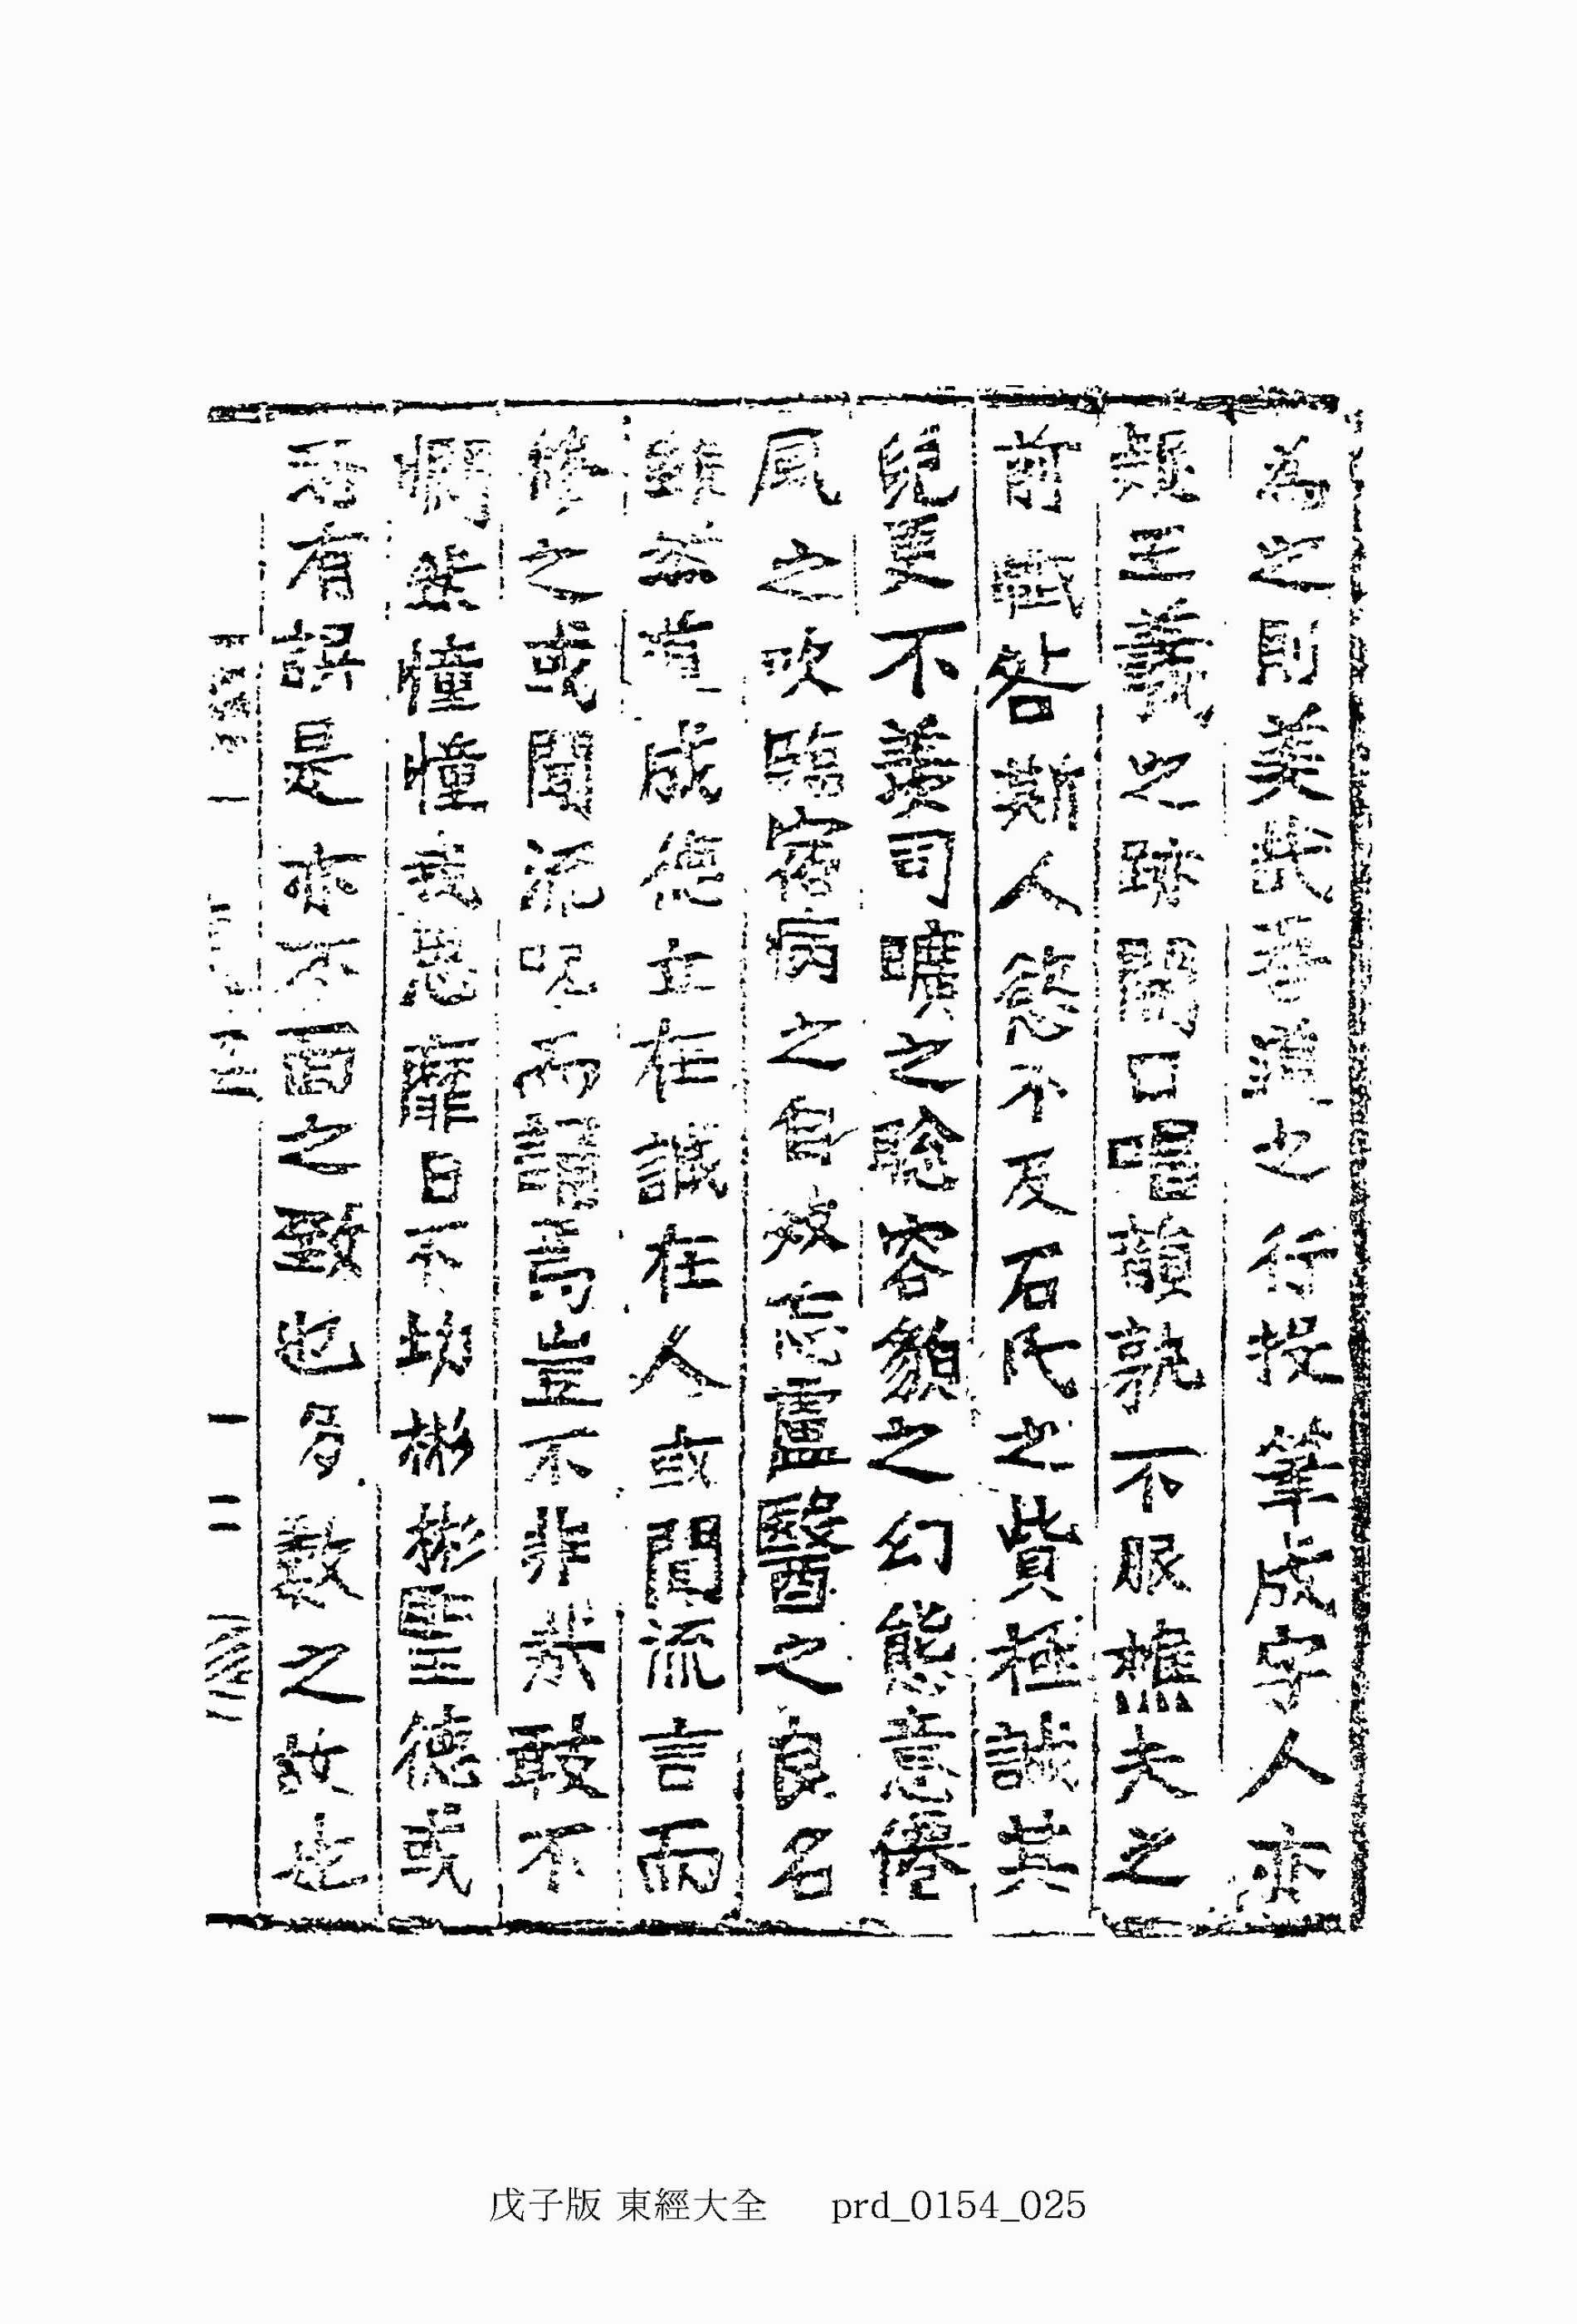 為之則美哉吾道之行投筆成字人亦
疑王羲之跡開口唱韻孰不服樵夫之
前懺咎斯人慾不及石氏之貲極誠其
兒更不羨司曠之聡容貌之幻態意僊
風之吹臨宿病之自效忘盧醫之良名
雖然道成德立在誠在人或聞流言而
修之或聞流呪而誦焉豈不非哉敢不
憫然憧憧我思靡日不切彬彬聖德或
恐有誤是亦不面之致也多數之故也
戊子版 東經大全 prd_0154_025